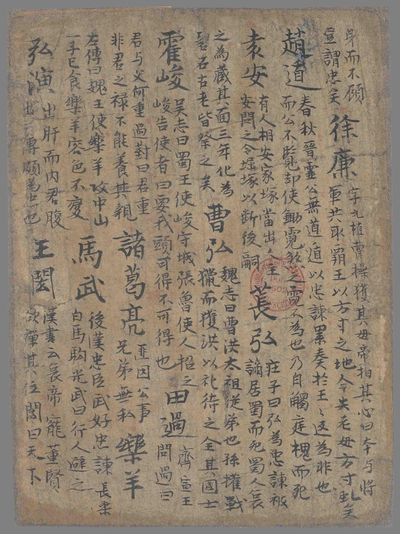 身而不顧
宣謂忠矣
徐庶
字元植曹操獲其母帝指其心曰本与將
軍共取霸王以方寸之地今失老母方寸乱矣
趙遁
春秋晉霊公無道遁以忠諫累奏於王王返為非也
而公不覧却使鋤霓煞之霓不為也乃自觸庭槐而死
袁安
有人相安家塚當出公王
安問之令堀塚以斷後嗣
萇弘
莊子曰弘為忠諫被
謫居蜀而死蜀人哀
之為藏其血三年化為
碧石古老皆祭之矣
曹弘
魏志曰曹洪太祖從弟也孫權戰
獵而獲洪以死待之全其國士
霍峻
吴志曰蜀王使峻守城張魯使人招之
峻告使者曰要我頭可得不可得也
田過
齊宣王
問過曰
君与父何重過對曰君重
非君之禄不能養其親
諸葛亮
並因公事
兄弟無私
樂羊
左傳曰魏王使樂羊攻中山
一子已食樂羊容色不變
馬武
後漢忠臣武好忠諫長乘
白馬駒光武曰行人避之
弘演
出肝而内君腹
出傳願為忠也
王閎
漢書云哀帝寵董賢
欲禪其位閎曰天下